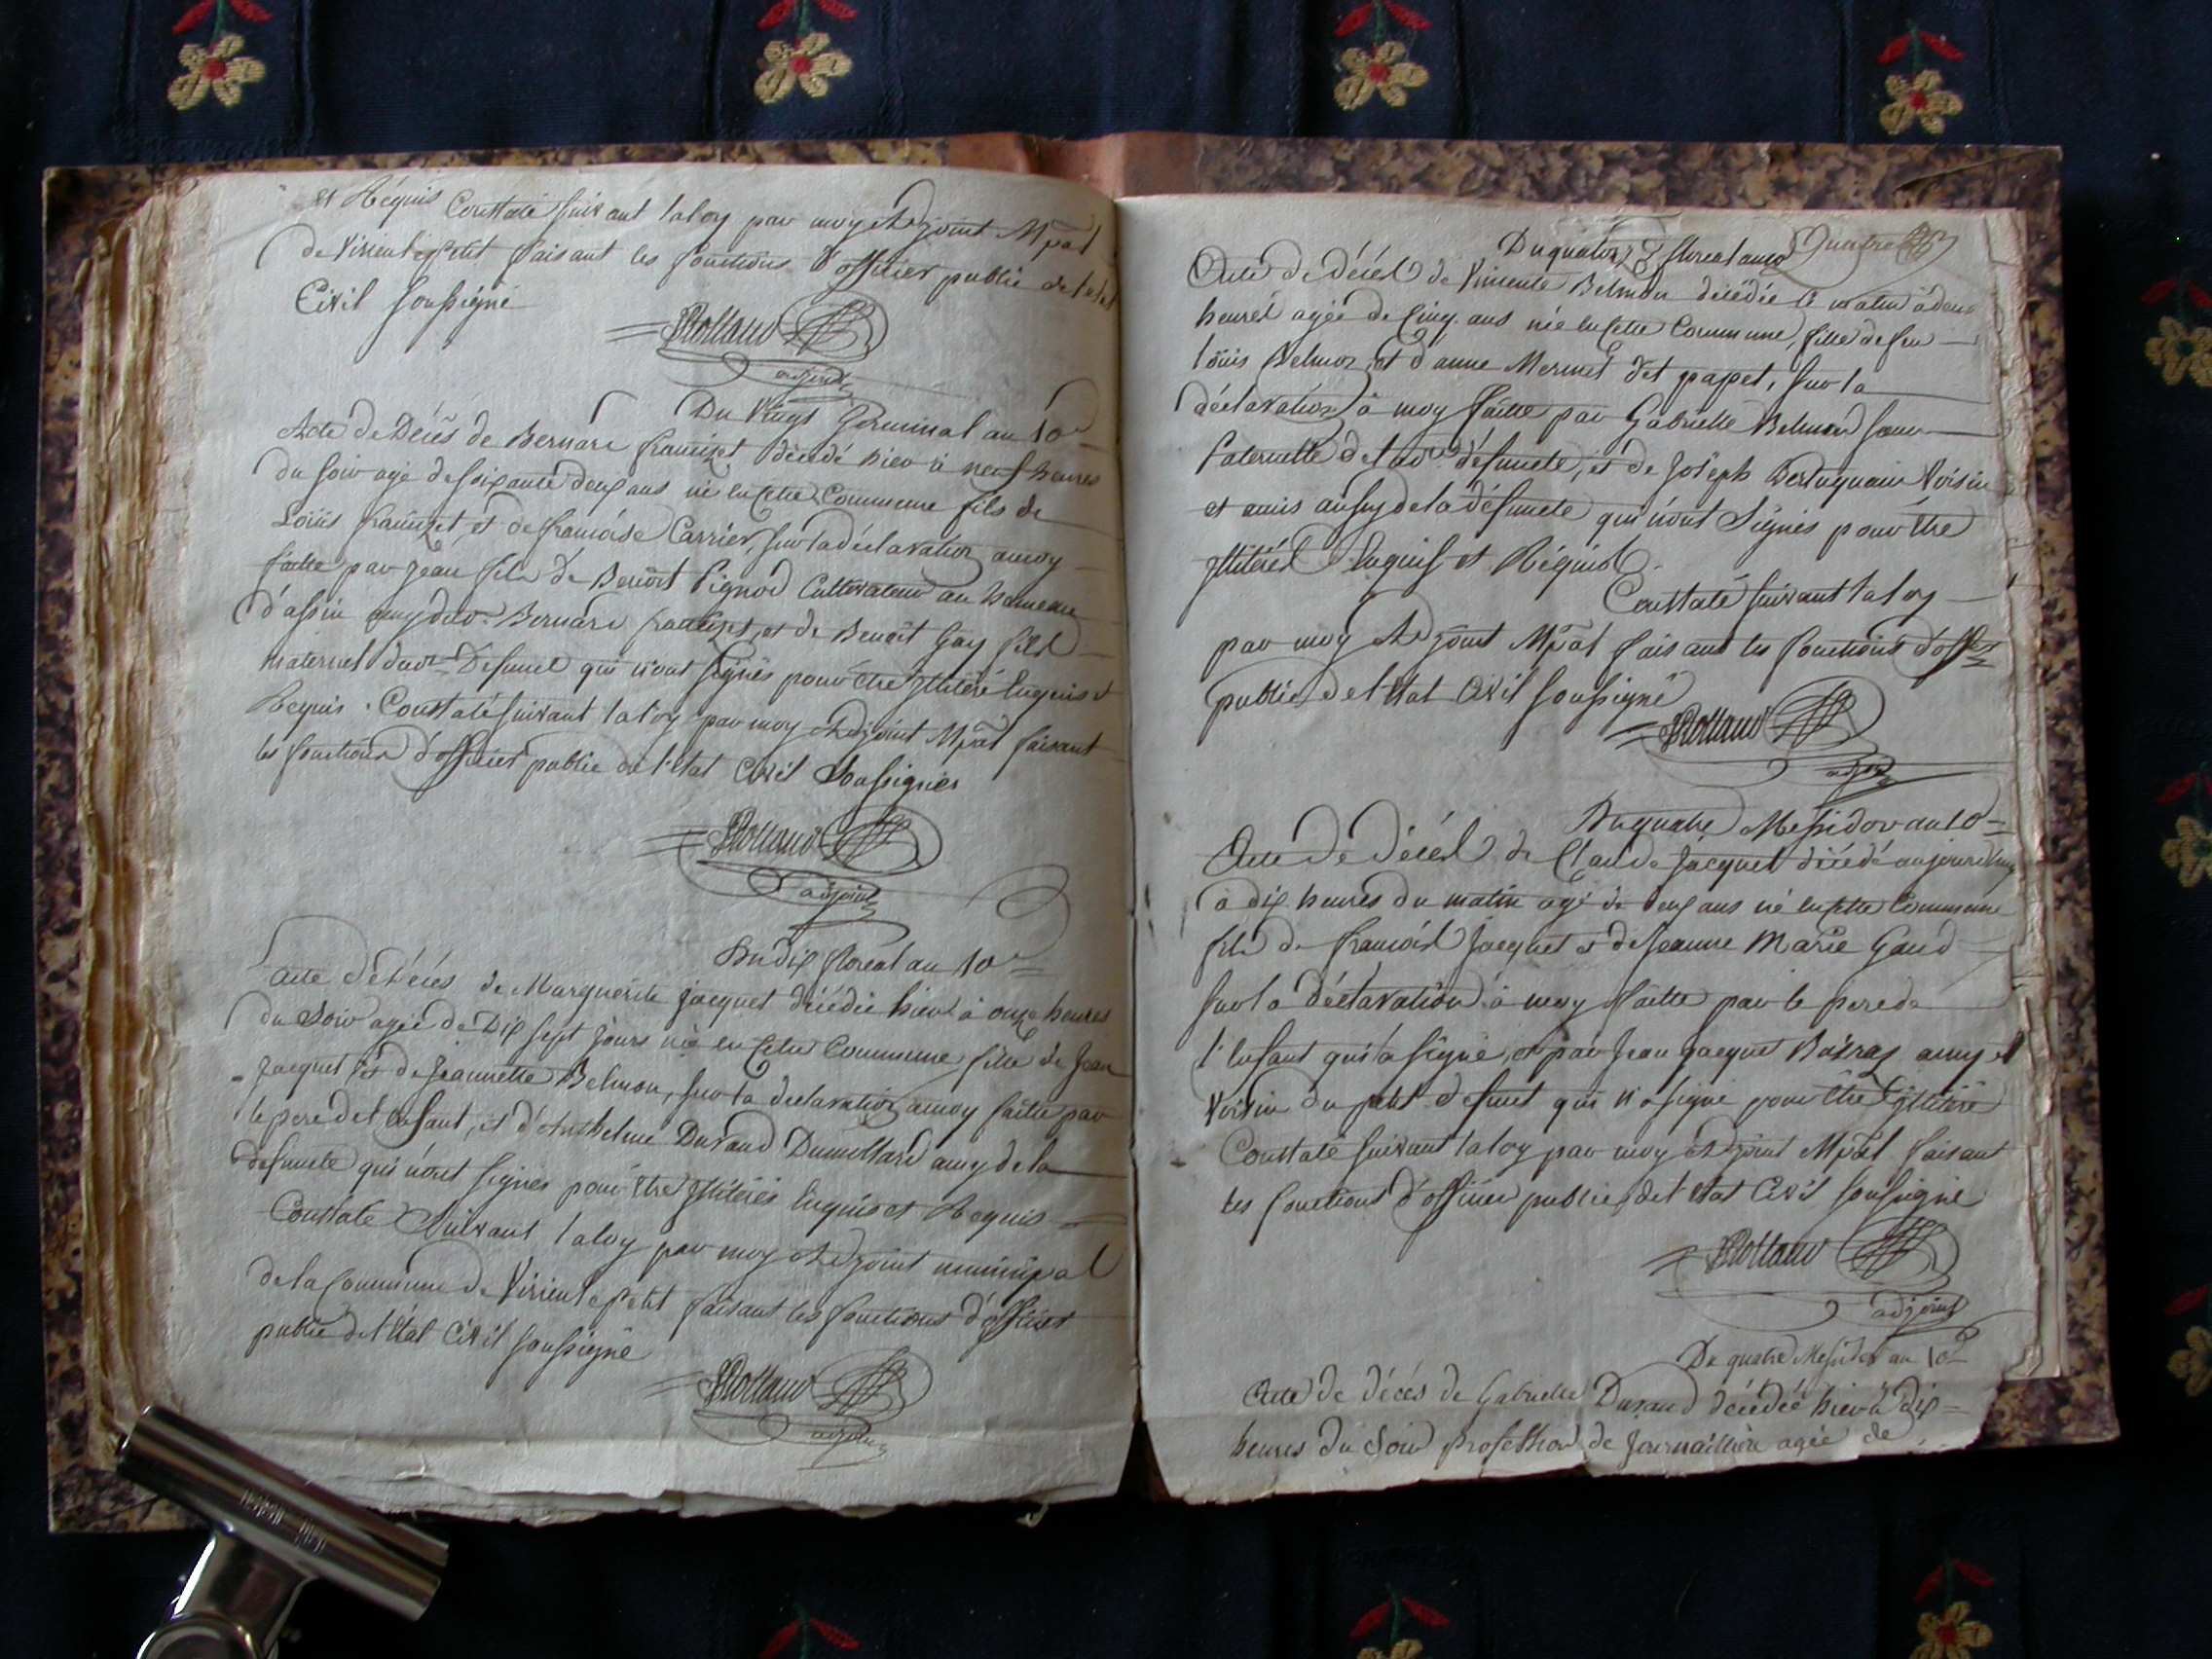 et Réquis Constaté suivant la loy par moy Adjoint Mpal
de Virieu le petit faisant les fonctions d'officier public de l'etat
Civil soussigné
Rolland
adjoint
Du Vingt Germinal an 10e
Acte de Décés de Bernard françizet décédé hier à neuf heures
du soir agé de soixante deux ans né en cette Commune fils de
Loüis françizet, et de françoise Carrier, sur la déclaration a moy
faitte par Jean fils de Benoit Pignod Cultivateur au hameau
d'assin amy dud. Bernard françizet, et de Benoit Gay
maternel dud. Défunct qui n'ont signés pour être Illitéré Enquis et
Requis. Constaté suivant la loy par moy Adjoint Mpal faisant
les fonctions d'officier public de l'etat Civil Soussignés
Rolland
adjoint
Du dix floréal an 10e
acte de Décés de Marguerite Jacquet décédée hier à onze heures
du Soir agée de Dix sept jours née en cette Commune fille de Jean
Jacquet et de Jeannette Belmon, sur la declaration a moy faitte par
le pere de l'enfant, et d'Anthelme Durand Dumollard amy de la
defuncte qui n'ont signés pour être Illitérés Enquis et Requis
Constaté Suivant la loy par moy Adjoint municipal
de la Commune de Virieu le petit faisant les fonctions d'officier
public de l'etat Civil soussigné
Rolland
adjoint
Du quatorze floreal an 10
Acte de décés de Vincente Belmon décédée ce matin à deux
heures agée de Cinq ans née en cette Commune, fille de feu
loüis Belmon et d'anne Mermet dit papet, sur la
déclaration à moy faitte par Gabrielle Belmon sœur
Paternelle de lad. défuncte, et de Joseph Bertuquain Voisin
et amis aussy de la défuncte qui n'ont Signés pour être
Illitérés Enquis et Réquis
Constaté suivant la loy
par moy Adjoint Mpal faisant les fonctions d'offer
public de l'etat Civil soussigné
Rolland
adjoint
Du quatre Messidor an 10e
Acte de décés de Claude Jacquet décédé aujourd'huy
à dix heures du matin agé de deux ans né en cette Commune
fils de françois Jacquet et de Jeanne Marie Gand
sur la déclaration à moy faitte par le pere de
l'enfant qui a signé, et par Jean Jacques amy et
Voisin du petit defunct qui n'a signé pour être Illitéré
Constaté suivant la loy par moy Adjoint Mpal faisant
les fonctions d'officier public de l'etat Civil soussigné
Rolland
adjoint
De quatre Messidor an 10e
Acte de décés de Gabrielle Durand décédée hier à dix
heures du Soir profession de Journaillière agée de